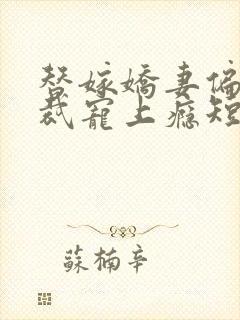 替嫁嬌妻偏
裁寵上瘾短
蘇楠辛